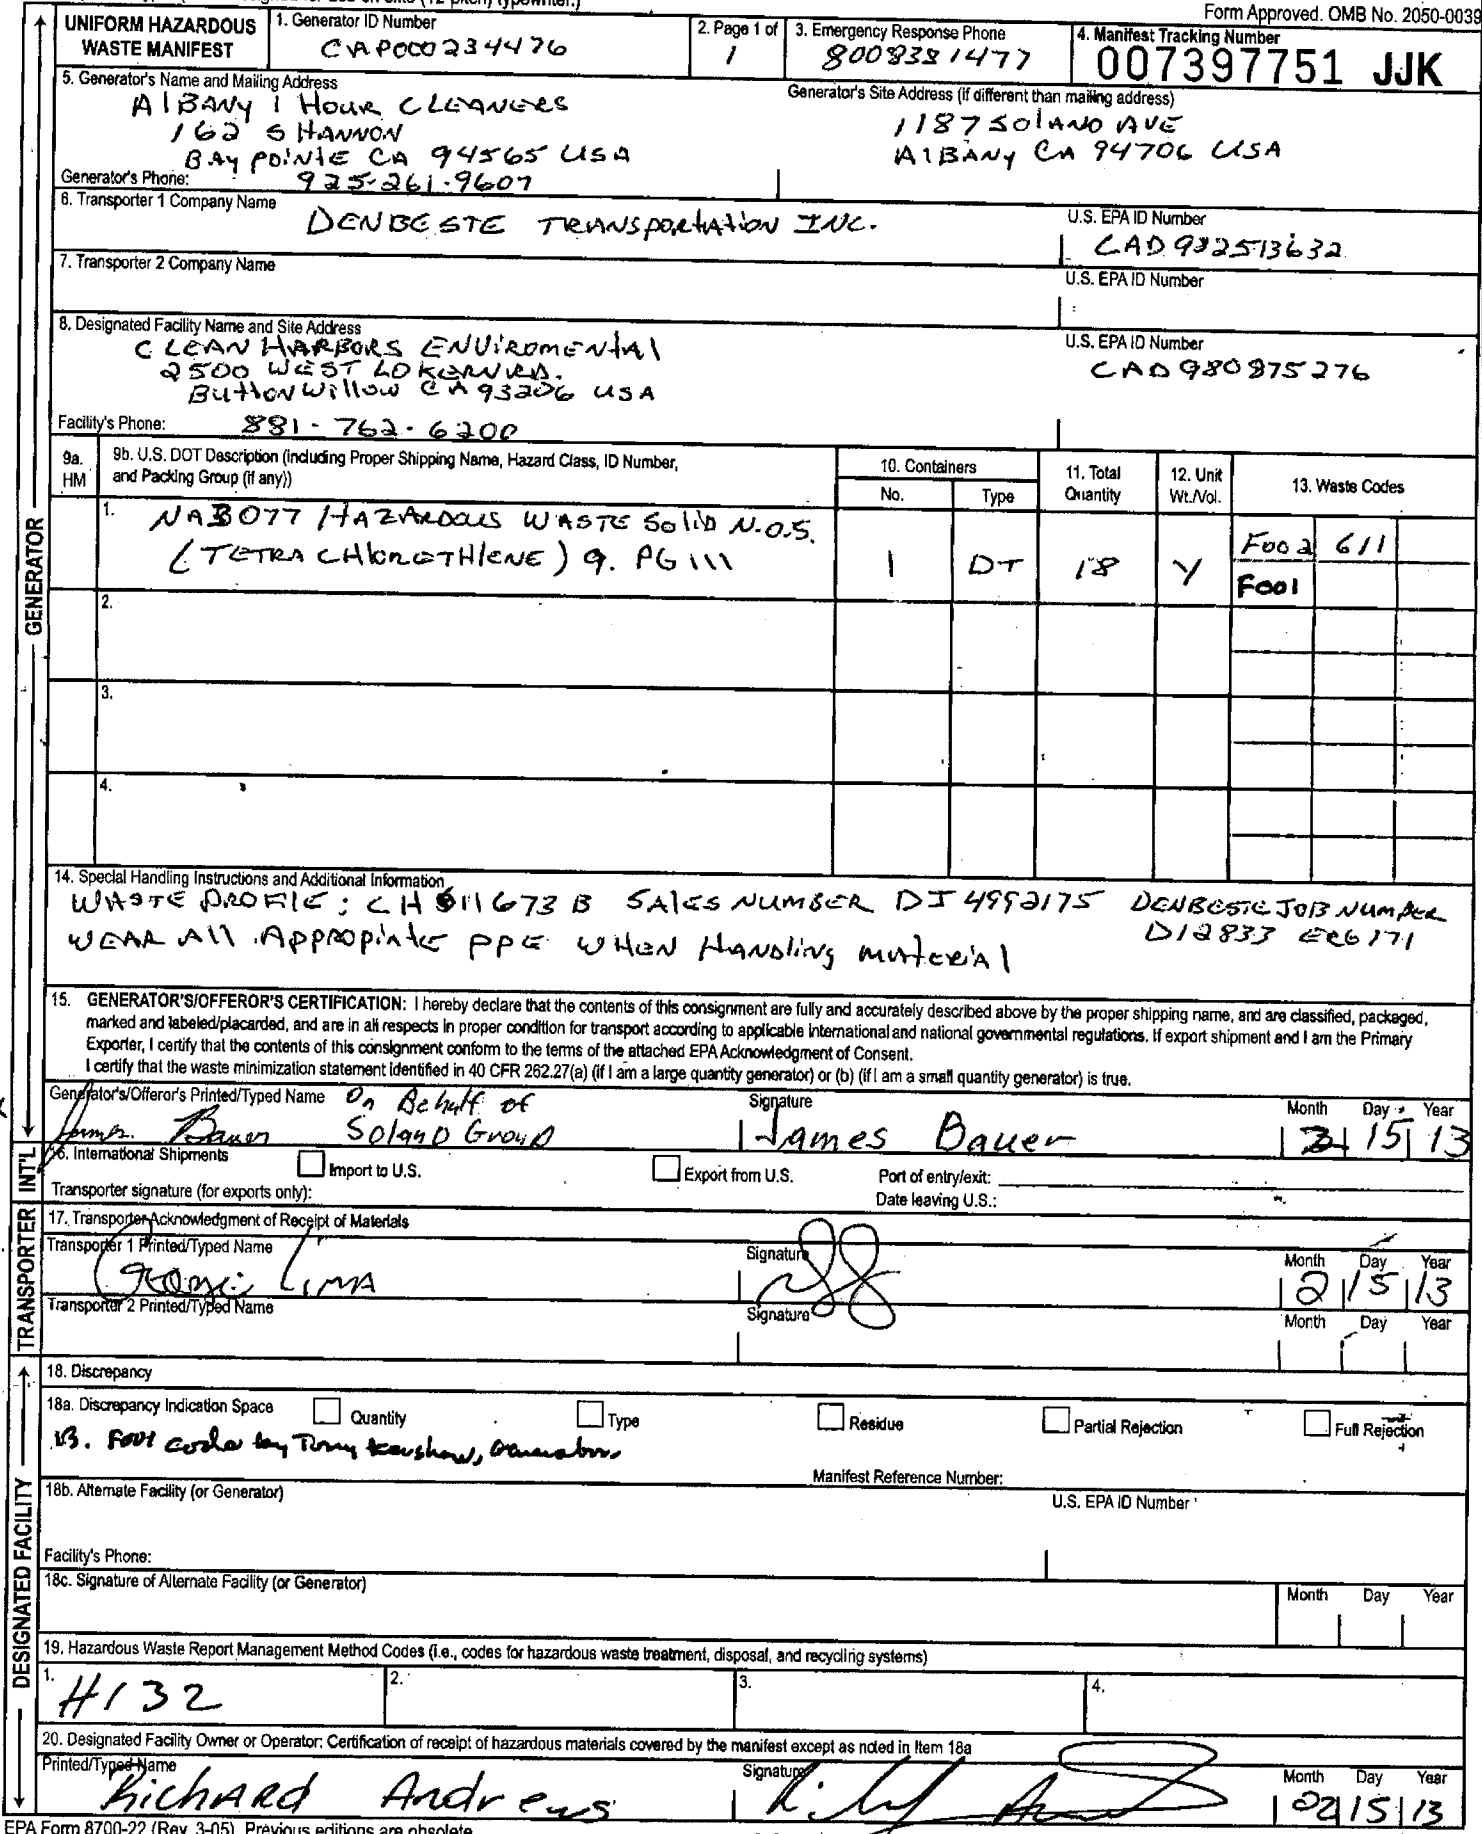 Form Approved. OMB No. 2050-0039
UNIFORM HAZARDOUS WASTE MANIFEST
1. Generator ID Number
CAP000234476
2. Page 1 of
1
3. Emergency Response Phone
8008381477
4. Manifest Tracking Number
007397751 JJK
5. Generator's Name and Mailing Address
AlBANY 1 HOUR CLEANERS
162 SHANNON
BAY POINTE CA 94565 USA
Generator's Phone: 925-261-9607
Generator's Site Address (if different than mailing address)
1187 SOLANO AVE
AlBANY CA 94706 USA
6. Transporter 1 Company Name
DENBESTE TRANSPORTATION INC.
U.S. EPA ID Number
CAD 982513632
7. Transporter 2 Company Name
U.S. EPA ID Number
8. Designated Facility Name and Site Address
CLEAN HARBORS ENVIROMENTAL
2500 WEST LOKERN RD.
ButtonWillow CA 93206 USA
Facility's Phone: 881-762-6200
U.S. EPA ID Number
CAD 980875276
9a. HM
9b. U.S. DOT Description (including Proper Shipping Name, Hazard Class, ID Number, and Packing Group (if any))
10. Containers
No.
Type
11. Total Quantity
12. Unit Wt./Vol.
13. Waste Codes
1.
NA3077 HAZARDOUS WASTE SOLID N.O.S.
(TETRACHLORETHLENE) 9. PG III
1
DT
18
Y
F002 611
F001
2.
3.
4.
14. Special Handling Instructions and Additional Information
WASTE PROFILE: CH 611673 B SALES NUMBER DJ 4992175 DENBESTE JOB NUMBER
D12833 ERG 171
WEAR All APPROPIATE PPE WHEN HANDLING MATERIAL
15. GENERATOR'S/OFFEROR'S CERTIFICATION: I hereby declare that the contents of this consignment are fully and accurately described above by the proper shipping name, and are classified, packaged,
marked and labeled/placarded, and are in all respects in proper condition for transport according to applicable international and national governmental regulations. If export shipment and I am the Primary
Exporter, I certify that the contents of this consignment conform to the terms of the attached EPA Acknowledgment of Consent.
I certify that the waste minimization statement identified in 40 CFR 262.27(a) (if I am a large quantity generator) or (b) (if I am a small quantity generator) is true.
Generator's/Offeror's Printed/Typed Name
On Behalf of
James Bauer Solano Group
Signature
James Bauer
Month Day Year
2 15 13
16. International Shipments
Import to U.S.
Export from U.S.
Port of entry/exit:
Transporter signature (for exports only):
Date leaving U.S.:
17. Transporter Acknowledgment of Receipt of Materials
Transporter 1 Printed/Typed Name
George Lima
Signature
Month Day Year
2 15 13
Transporter 2 Printed/Typed Name
Signature
Month Day Year
18. Discrepancy
18a. Discrepancy Indication Space
Quantity
Type
Residue
Partial Rejection
Full Rejection
13. F001 code by Tony Kershaw, Generator.
Manifest Reference Number:
18b. Alternate Facility (or Generator)
U.S. EPA ID Number
Facility's Phone:
18c. Signature of Alternate Facility (or Generator)
Month Day Year
19. Hazardous Waste Report Management Method Codes (i.e., codes for hazardous waste treatment, disposal, and recycling systems)
1.
H132
2.
3.
4.
20. Designated Facility Owner or Operator: Certification of receipt of hazardous materials covered by the manifest except as noted in Item 18a
Printed/Typed Name
Richard Andrews
Signature
Month Day Year
02 15 13
EPA Form 8700-22 (Rev. 3-05) Previous editions are obsolete.
GENERATOR
INT'L
TRANSPORTER
DESIGNATED FACILITY